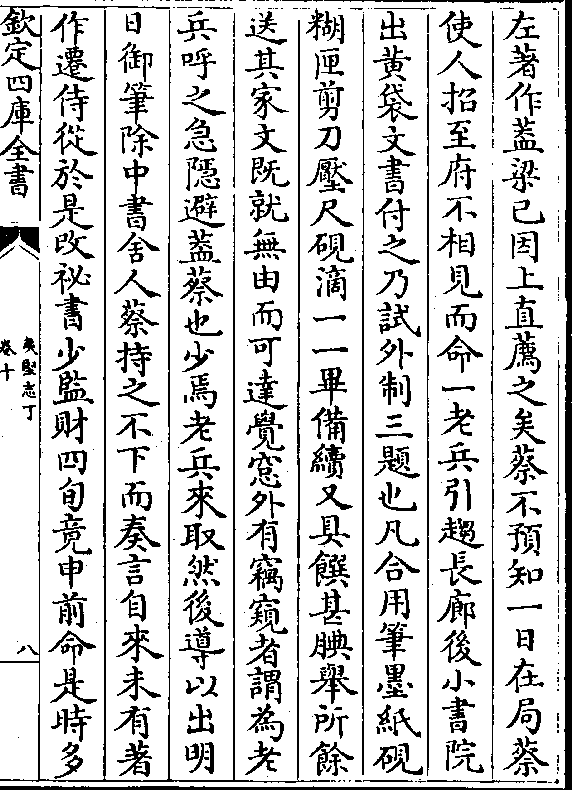 左著作蓋梁已因上直薦之矣蔡不預知一日在局蔡
使人招至府不相見而命一老兵引趨長廊後小書院
出黃袋文書付之乃試外制三題也凡合用筆墨紙硯
糊匣剪刀壓尺硯滴一一畢備續又具饌甚腆舉所餘
送其家文既就無由而可達覺窓外有竊窺者謂為老
兵呼之急隱避蓋蔡也少焉老兵來取然後導以出明
日御筆除中書舍人蔡持之不下而奏言自來未有著
作遷侍從於是改祕書少監財四旬竟申前命是時多
欽定四庫全書
夷堅志丁
卷十
八